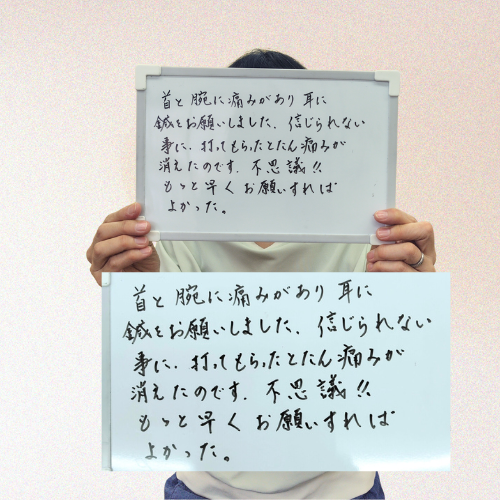 首と腕に痛みがあり耳に
鍼をお願いしました、信じられない
事に、打ってもらったとたん痛みが
消えたのです。不思議!!
もっと早くお願いすれば
よかった。
首と腕に痛みがあり耳に
鍼をお願いしました、信じられない
事に、打ってもらったとたん痛みが
消えたのです。不思議!!
もっと早くお願いすれば
よかった。